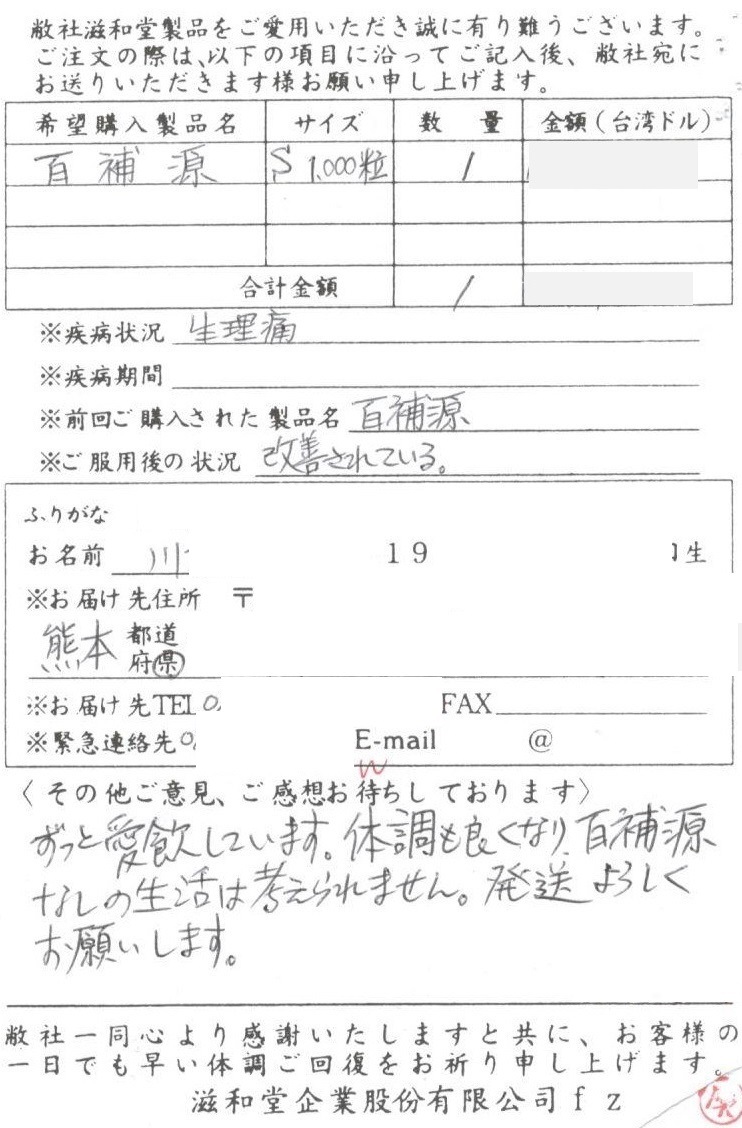 敝社滋和堂製品をご愛用いただき誠に有り難うございます。
ご注文の際は、以下の項目に沿ってご記入後、敝社宛に
お送りいただきます様お願い申し上げます。
希望購入製品名 サイズ 数量 金額(台湾ドル)
百補源 S 1,000粒 1
合計金額 1
※疾病状況 生理痛
※疾病期間
※前回ご購入された製品名 百補源
※ご服用後の状況 改善されている。
ふりがな
お名前 川 19 生
※お届け先住所 〒
熊本 都道
府県
※お届け先TEL 0 FAX
※緊急連絡先 0 E-mail @
〈その他ご意見、ご感想お待ちしております〉
ずっと愛飲しています。体調も良くなり、百補源
なしの生活は考えられません。発送よろしく
お願いします。
敝社一同心より感謝いたしますと共に、お客様の
一日でも早い体調ご回復をお祈り申し上げます。
滋和堂企業股份有限公司 f z